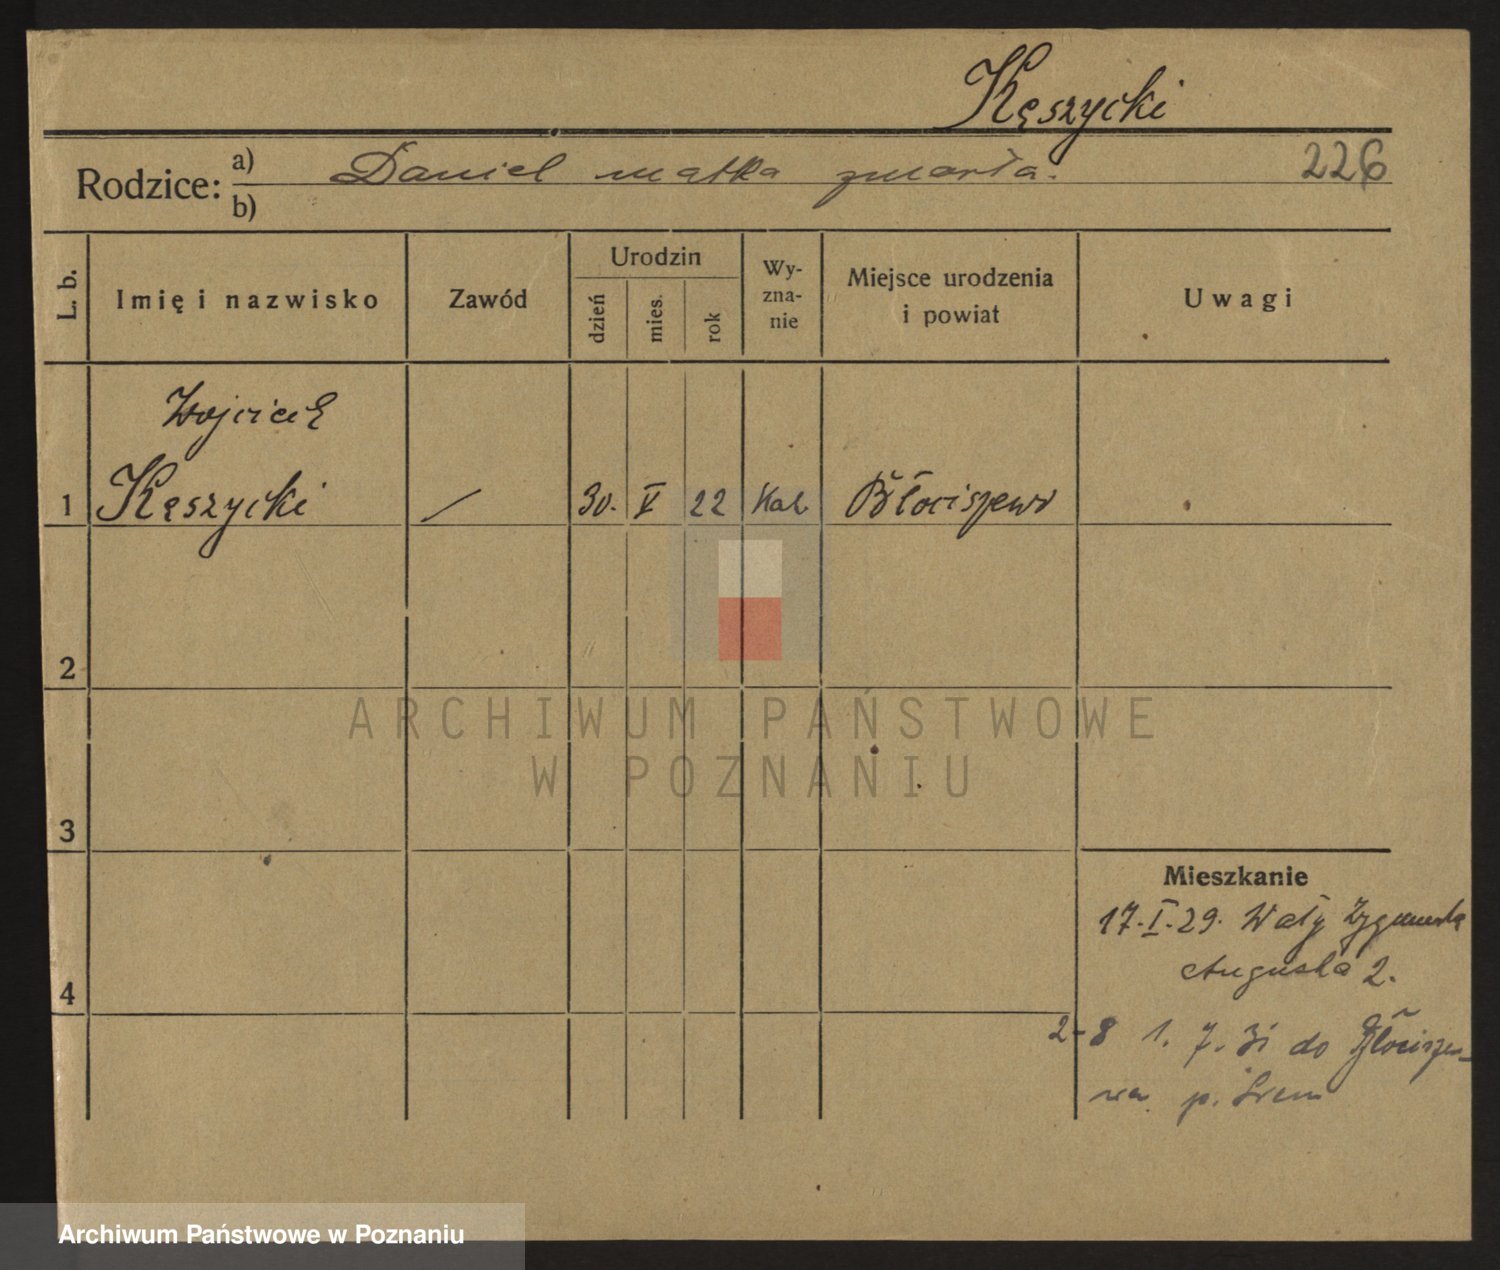 Kęszycki
Rodzice: a) Daniel matka zmarła. 226
b)
L. b.
Imię i nazwisko
Zawód
Urodzin
dzień
mies.
rok
Wy-
zna-
nie
Miejsce urodzenia
i powiat
Uwagi
Wojciech
1 Kęszycki / 30. V 22 Kat. Błociszewo
2
ARCHIWUM PAŃSTWOWE
W POZNANIU
3
Mieszkanie
17.I.29. Wały Zygmunta
Augusta 2.
4
2-8 1. 7. 31 do Błocisze-
wa p. Śrem
Archiwum Państwowe w Poznaniu